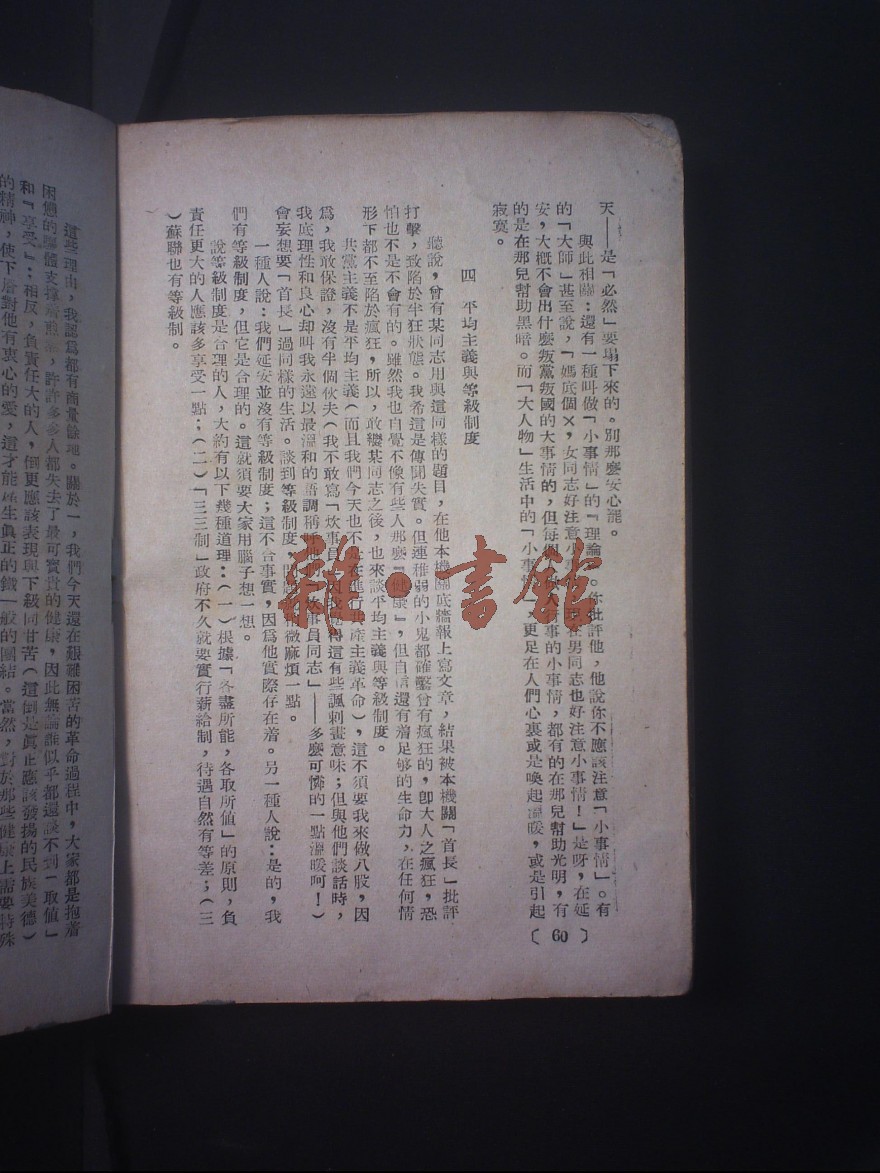 天——是「必然」要塌下來的。別那麼安心罷。
與此相關：還有一種叫做「小事情」的「理論」。你批評他，他說你不應該注意「小事情」。有
的「大師」甚至說，「媽底個×，女同志好注意小事 在男同志也好注意小事情！」是呀，在延
安，大概不會出什麼叛黨叛國的大事情的，但每個 人行事的小事情，都有的在那兒幫助光明，有
的是在那兒幫助黑暗。而「大人物」生活中的「小事情」，更足在人們心裏或是喚起溫暖，或是引起
寂寞。
〔60〕
四 平均主義與等級制度
聽說，曾有某同志用與這同樣的題目，在他本機關底牆報上寫文章，結果被本機關「首長」批評
打擊，致陷於半狂狀態。我希這是傳聞失實。但連稚弱的小鬼都確鑿曾有瘋狂的，卽大人之瘋狂，恐
怕也不是不會有的。雖然我也自覺不像有些人那麼「健康」，但自信還有着足够的生命力，在任何情
形下都不至陷於瘋狂，所以，敢繼某同志之後，也來談平均主義與等級制度。
共黨主義不是平均主義（而且我們今天也不是在進行共產主義革命），這不須要我來做八股，因
爲，我敢保證，沒有半個伙夫（我不敢寫「炊事員」，因我覺得這有些諷刺畫意味；但與他們談話時，
我底理性和良心却叫我永遠以最溫和的語調稱呼他們「炊事員同志」——多麼可憐的一點溫暖呵！）
會妄想要「首長」過同樣的生活。談到等級制度，問題就稍微麻煩一點。
一種人說：我們延安並沒有等級制度；這不合事實，因爲他實際存在着。另一種人說：是的，我
們有等級制度，但它是合理的。這就須要大家用腦子想一想。
說等級制度是合理的人，大約有以下幾種道理：（一）根據「各盡所能，各取所値」的原則，負
責任更大的人應該多享受一點；（二）「三三制」政府不久就要實行薪給制，待遇自然有等差；（三
）蘇聯也有等級制。
這些理由，我認爲都有商量餘地。關於一，我們今天還在艱難困苦的革命過程中，大家都是抱着
困憊的軀體支撐着煎熬，許許多多人都失去了最可寶貴的健康，因此無論誰似乎都還談不到「取値」
和「享受」；相反，負責任大的人，倒更應該表現與下級同甘苦（這倒是眞正應該發揚的民族美德）
的精神，使下層對他有衷心的愛，這才能產生眞正的鐵一般的團結。當然，對於那些健康上需要特殊
雜·書館